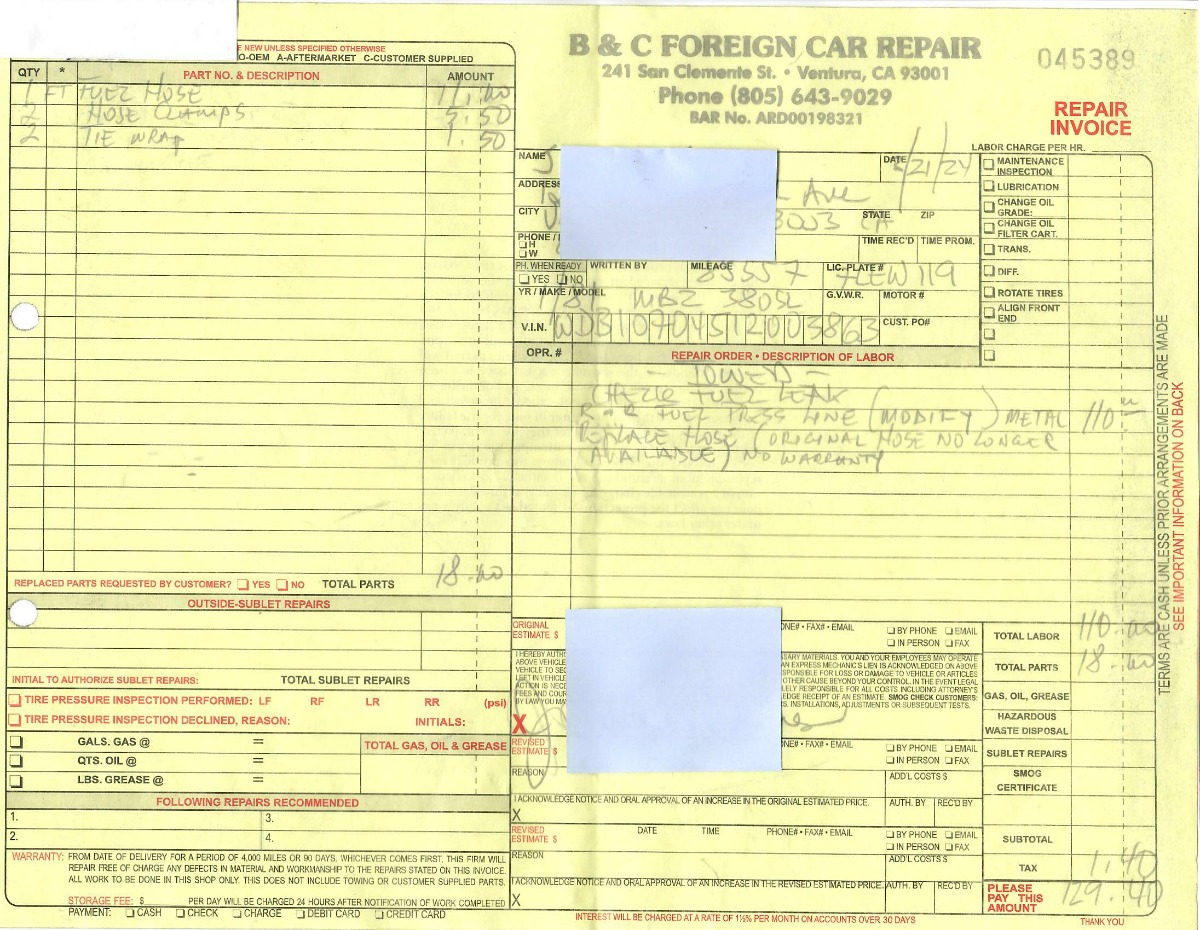 E NEW UNLESS SPECIFIED OTHERWISE
O-OEM A-AFTERMARKET C-CUSTOMER SUPPLIED
QTY * PART NO. & DESCRIPTION AMOUNT
1 FT FUEL HOSE 11.00
2 HOSE CLAMPS 5.50
2 TIE WRAP 1.50
REPLACED PARTS REQUESTED BY CUSTOMER? YES NO TOTAL PARTS 18.00
OUTSIDE-SUBLET REPAIRS
INITIAL TO AUTHORIZE SUBLET REPAIRS: TOTAL SUBLET REPAIRS
TIRE PRESSURE INSPECTION PERFORMED: LF RF LR RR (psi)
TIRE PRESSURE INSPECTION DECLINED, REASON: INITIALS:
GALS. GAS @ = TOTAL GAS, OIL & GREASE
QTS. OIL @ =
LBS. GREASE @ =
FOLLOWING REPAIRS RECOMMENDED
1. 3.
2. 4.
WARRANTY: FROM DATE OF DELIVERY FOR A PERIOD OF 4,000 MILES OR 90 DAYS, WHICHEVER COMES FIRST, THIS FIRM WILL
REPAIR FREE OF CHARGE ANY DEFECTS IN MATERIAL AND WORKMANSHIP TO THE REPAIRS STATED ON THIS INVOICE.
ALL WORK TO BE DONE IN THIS SHOP ONLY. THIS DOES NOT INCLUDE TOWING OR CUSTOMER SUPPLIED PARTS.
STORAGE FEE: $ PER DAY WILL BE CHARGED 24 HOURS AFTER NOTIFICATION OF WORK COMPLETED
PAYMENT: CASH CHECK CHARGE DEBIT CARD CREDIT CARD
B & C FOREIGN CAR REPAIR
241 San Clemente St. • Ventura, CA 93001
Phone (805) 643-9029
BAR No. ARD00198321
045389
REPAIR
INVOICE
LABOR CHARGE PER HR.
NAME J DATE /21/24
ADDRESS Ave
CITY V 3003 STATE CA ZIP
PHONE / H W TIME REC'D TIME PROM.
PH. WHEN READY YES NO WRITTEN BY MILEAGE 85557 LIC. PLATE # 7LEW119
YR / MAKE / MODEL 1981 MBZ 380SL G.V.W.R. MOTOR #
V.I.N. WDB10704512003863 CUST. PO#
MAINTENANCE INSPECTION
LUBRICATION
CHANGE OIL GRADE:
CHANGE OIL FILTER CART.
TRANS.
DIFF.
ROTATE TIRES
ALIGN FRONT END
OPR. # REPAIR ORDER • DESCRIPTION OF LABOR
- TOWED -
CHECK FUEL LEAK
R + R FUEL PRESS LINE (MODIFY) METAL 110.00
REPLACE HOSE (ORIGINAL HOSE NO LONGER
AVAILABLE) NO WARRANTY
TERMS ARE CASH UNLESS PRIOR ARRANGEMENTS ARE MADE
SEE IMPORTANT INFORMATION ON BACK
ORIGINAL ESTIMATE $ ONE# • FAX# • EMAIL BY PHONE EMAIL IN PERSON FAX
I HEREBY AUTH SARY MATERIALS. YOU AND YOUR EMPLOYEES MAY OPERATE
ABOVE VEHICLE AN EXPRESS MECHANIC'S LIEN IS ACKNOWLEDGED ON ABOVE
VEHICLE TO SEC SPONSIBLE FOR LOSS OR DAMAGE TO VEHICLE OR ARTICLES
LEFT IN VEHICLE OTHER CAUSE BEYOND YOUR CONTROL. IN THE EVENT LEGAL
ACTION IS NECE LELY RESPONSIBLE FOR ALL COSTS INCLUDING ATTORNEY'S
FEES AND COUR LEDGE RECEIPT OF AN ESTIMATE. SMOG CHECK CUSTOMERS:
BY LAW YOU MAY S, INSTALLATIONS, ADJUSTMENTS OR SUBSEQUENT TESTS.
X
REVISED ESTIMATE $ ONE# • FAX# • EMAIL BY PHONE EMAIL IN PERSON FAX
REASON ADD'L COSTS $
I ACKNOWLEDGE NOTICE AND ORAL APPROVAL OF AN INCREASE IN THE ORIGINAL ESTIMATED PRICE. AUTH. BY REC'D BY
X
REVISED ESTIMATE $ DATE TIME PHONE# • FAX# • EMAIL BY PHONE EMAIL IN PERSON FAX
REASON ADD'L COSTS $
I ACKNOWLEDGE NOTICE AND ORAL APPROVAL OF AN INCREASE IN THE REVISED ESTIMATED PRICE. AUTH. BY REC'D BY
X
TOTAL LABOR 110.00
TOTAL PARTS 18.00
GAS, OIL, GREASE
HAZARDOUS WASTE DISPOSAL
SUBLET REPAIRS
SMOG CERTIFICATE
SUBTOTAL
TAX 1.40
PLEASE PAY THIS AMOUNT 129.40
INTEREST WILL BE CHARGED AT A RATE OF 1½% PER MONTH ON ACCOUNTS OVER 30 DAYS
THANK YOU